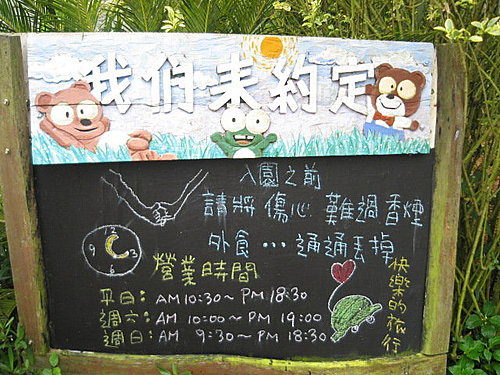 我們未約定
入園之前
請將傷心 難過 香煙
外食…通通丟掉
12
3
6
9
營業時間
平日：AM 10:30～PM 18:30
週六：AM 10:00～PM 19:00
週日：AM 9:30～PM 18:30
快樂的旅行